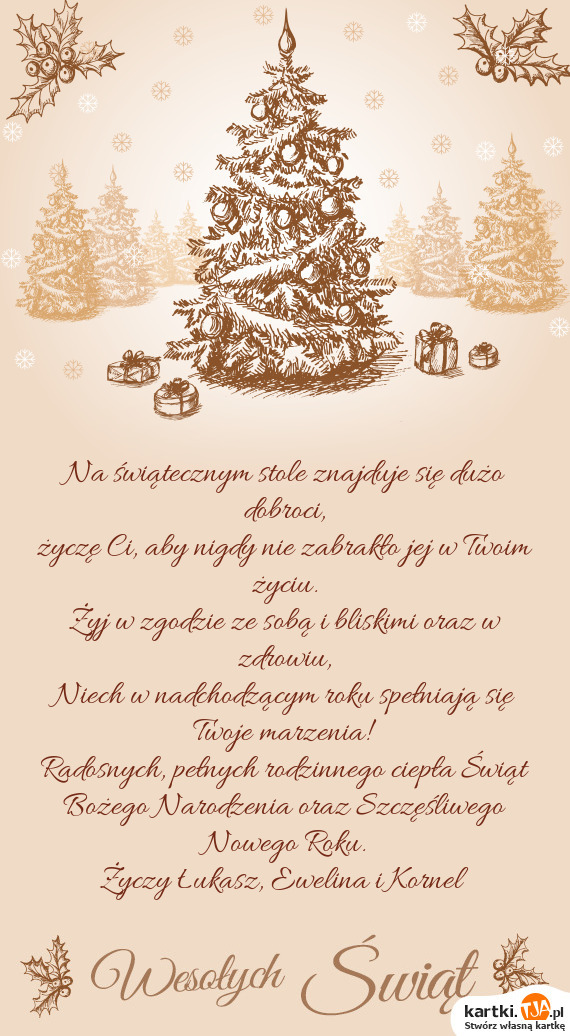 Na świątecznym stole znajduje się dużo
dobroci,
życzę Ci, aby nigdy nie zabrakło jej w Twoim
życiu.
Żyj w zgodzie ze sobą i bliskimi oraz w
zdrowiu,
Niech w nadchodzącym roku spełniają się
Twoje marzenia!
Radosnych, pełnych rodzinnego ciepła Świąt
Bożego Narodzenia oraz Szczęśliwego
Nowego Roku.
Życzy Łukasz, Ewelina i Kornel
Wesołych Świąt
kartki.TJA.pl
Stwórz własną kartkę